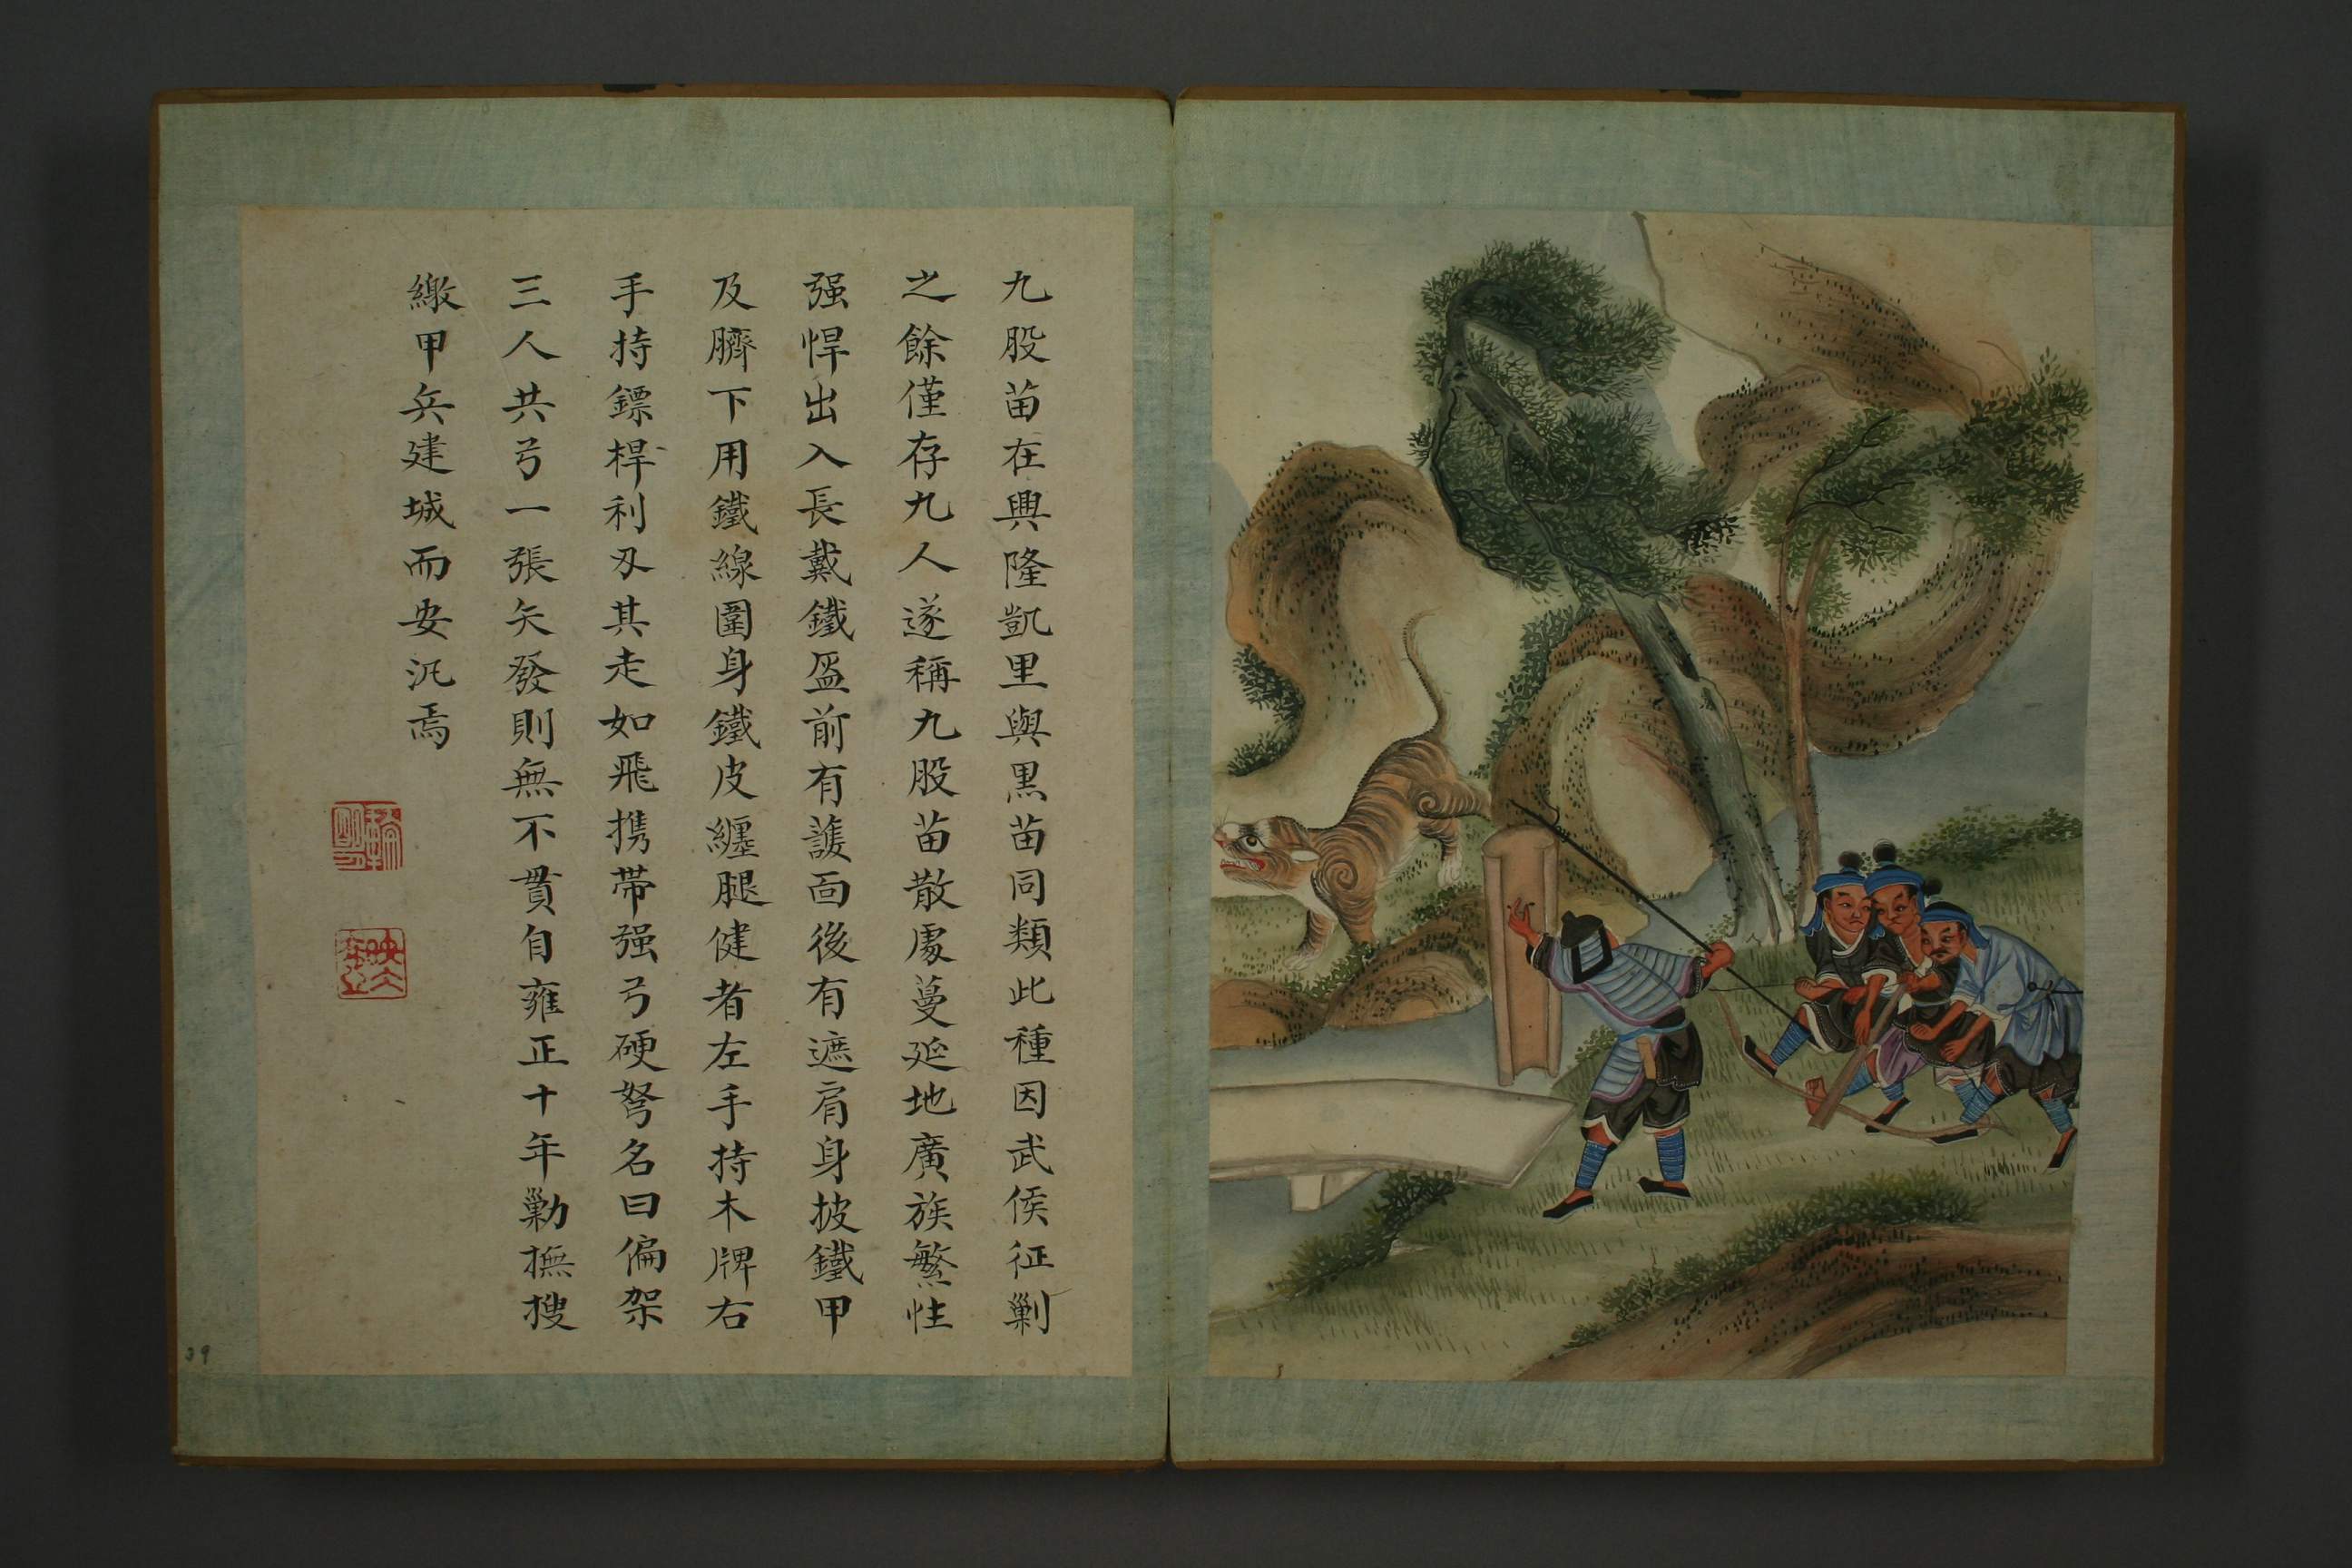 九股苗在興隆凱里與黒苗同類此種因武侯征剿
之餘僅存九人遂稱九股苗散處蔓延地廣族繁性
强悍出入長戴鐵盔前有護面後有遮肩身披鐵甲
及臍下用鐵線圍身鐵皮纏腿健者左手持木牌右
手持鏢桿利刄其走如飛攜帶强弓硬弩名曰偏架
三人共弓一張矢發則無不貫自雍正十年勦撫搜
繳甲兵建城而安汛焉
39